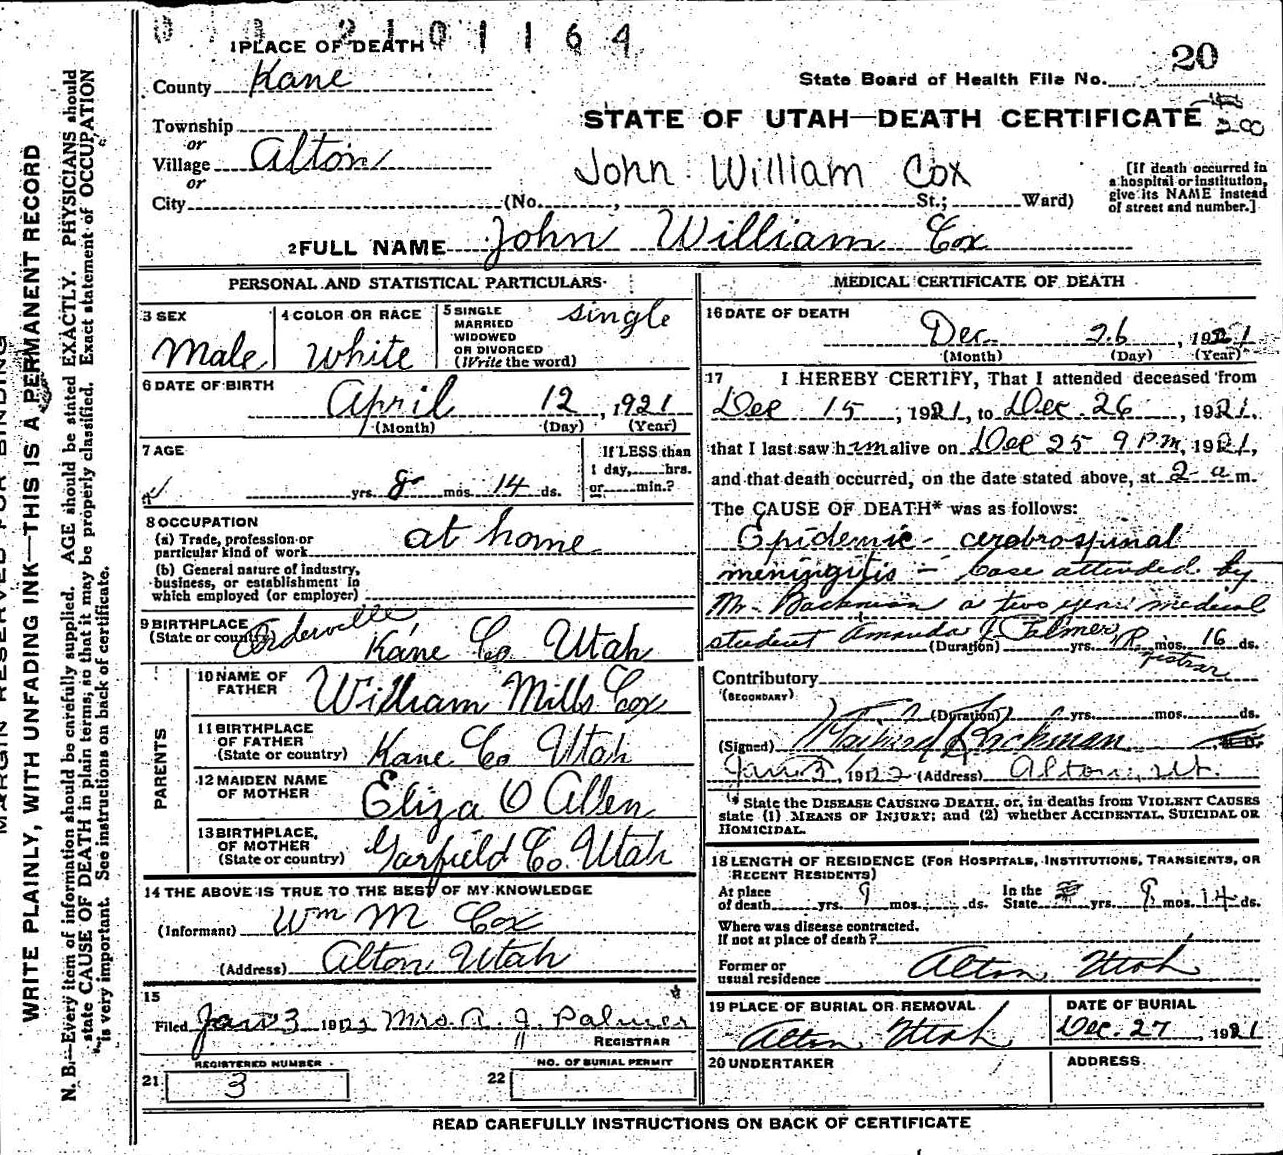 2101164
1 PLACE OF DEATH
County Kane
State Board of Health File No. 20
Township
or
STATE OF UTAH—DEATH CERTIFICATE
28
Village Alton
or
John William Cox
[If death occurred in a hospital or institution, give its NAME instead of street and number.]
City (No. , St.; Ward)
2 FULL NAME John William Cox
PERSONAL AND STATISTICAL PARTICULARS
3 SEX
Male
4 COLOR OR RACE
White
5 SINGLE
MARRIED
WIDOWED
OR DIVORCED
(Write the word)
single
6 DATE OF BIRTH
April 12, 1921
(Month) (Day) (Year)
7 AGE
yrs. 8 mos. 14 ds.
If LESS than
1 day, hrs.
or min.?
8 OCCUPATION
(a) Trade, profession or
particular kind of work at home
(b) General nature of industry,
business, or establishment in
which employed (or employer)
9 BIRTHPLACE
(State or country) Orderville
Kane Co Utah
PARENTS
10 NAME OF
FATHER William Mills Cox
11 BIRTHPLACE
OF FATHER
(State or country) Kane Co Utah
12 MAIDEN NAME
OF MOTHER Eliza O Allen
13 BIRTHPLACE,
OF MOTHER
(State or country) Garfield Co. Utah
14 THE ABOVE IS TRUE TO THE BEST OF MY KNOWLEDGE
(Informant) Wm M Cox
(Address) Alton Utah
15
Filed Jan 3 1922 Mrs. R. J. Palmer
REGISTRAR
REGISTERED NUMBER
21 3
NO. OF BURIAL PERMIT
22
MEDICAL CERTIFICATE OF DEATH
16 DATE OF DEATH
Dec. 26, 1921
(Month) (Day) (Year)
17 I HEREBY CERTIFY, That I attended deceased from
Dec 15, 1921, to Dec. 26, 1921.
that I last saw him alive on Dec 25 9 P.M, 1921,
and that death occurred, on the date stated above, at 2 a m.
The CAUSE OF DEATH* was as follows:
Epidemic - cerebrospinal
meningitis - Case attended by
Mr. Backman a two year medical
student Amanda J. Palmer Registrar
(Duration) yrs. mos. 16 ds.
Contributory
(SECONDARY)
(Duration) yrs. mos. ds.
(Signed) Backman
Jan 3, 1922 (Address) Alton, Ut.
* State the DISEASE CAUSING DEATH, or, in deaths from VIOLENT CAUSES
state (1) MEANS OF INJURY; and (2) whether ACCIDENTAL, SUICIDAL OR
HOMICIDAL.
18 LENGTH OF RESIDENCE (FOR HOSPITALS, INSTITUTIONS, TRANSIENTS, OR
RECENT RESIDENTS)
At place
of death yrs. mos. ds.
In the
State yrs. 8 mos. 14 ds.
Where was disease contracted,
If not at place of death?
Former or
usual residence Alton, Utah
19 PLACE OF BURIAL OR REMOVAL
Alton Utah
DATE OF BURIAL
Dec. 27, 1921
20 UNDERTAKER
ADDRESS
READ CAREFULLY INSTRUCTIONS ON BACK OF CERTIFICATE
MARGIN RESERVED FOR BINDING
WRITE PLAINLY, WITH UNFADING INK—THIS IS A PERMANENT RECORD
N. B.—Every item of information should be carefully supplied. AGE should be stated EXACTLY. PHYSICIANS should
state CAUSE OF DEATH in plain terms, so that it may be properly classified. Exact statement of OCCUPATION
is very important. See instructions on back of certificate.